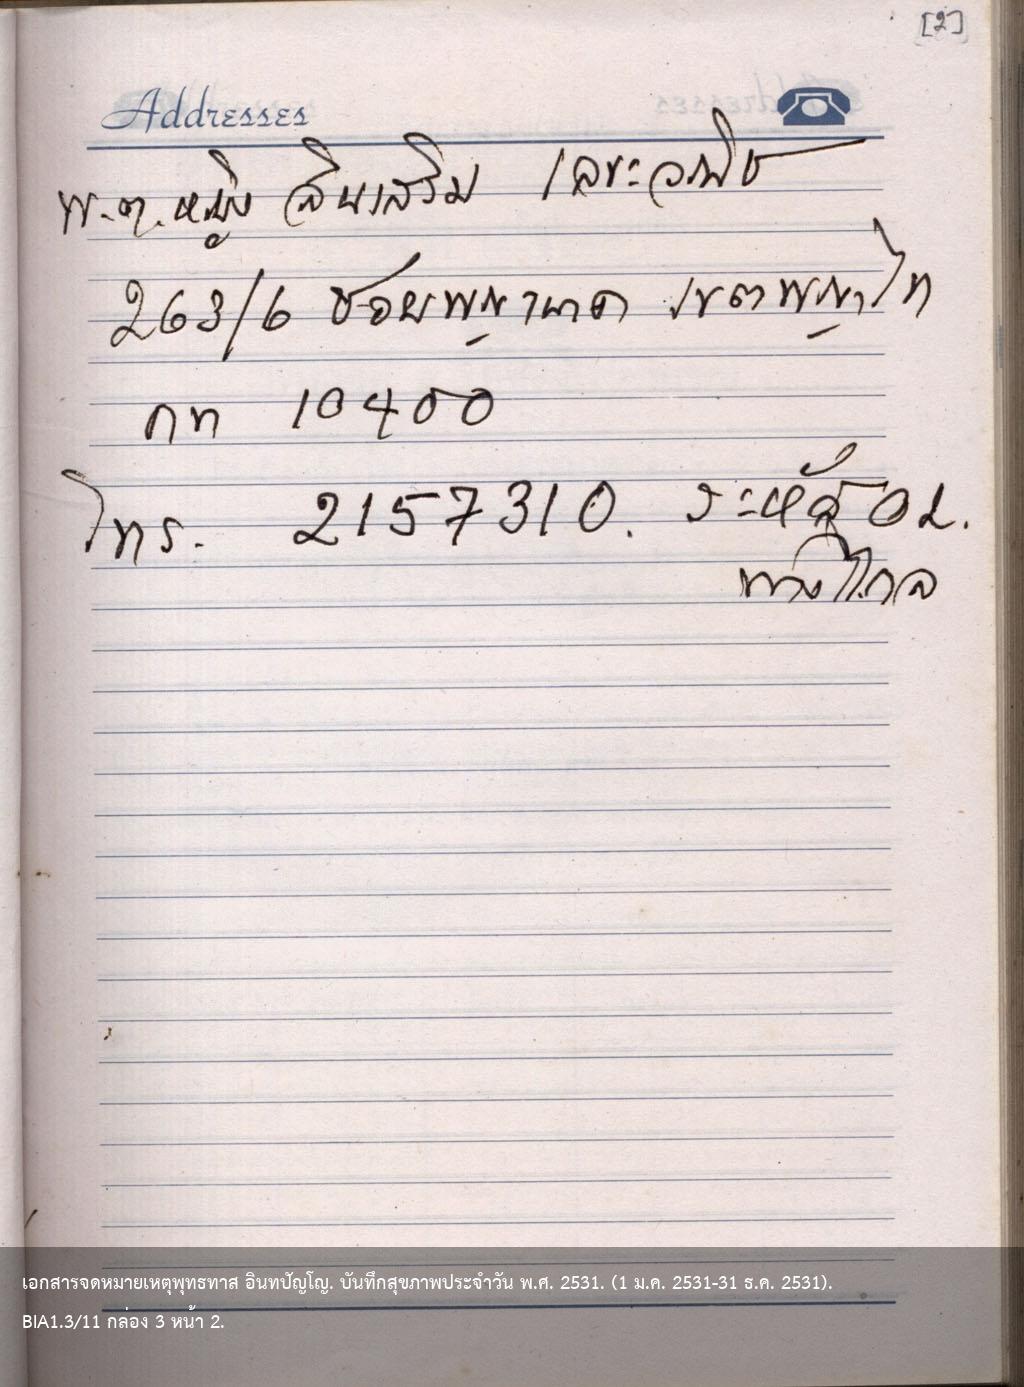 [2]
Addresses
พ.ต.หญิง
263/6 ซอยพญานาค เขตพญาไท
กท 10400
โทร. 2157310. ระหัส 02.
ทางไกล
เอกสารจดหมายเหตุพุทธทาส อินทปัญโญ. บันทึกสุขภาพประจำวัน พ.ศ. 2531. (1 ม.ค. 2531-31 ธ.ค. 2531).
BIA1.3/11 กล่อง 3 หน้า 2.